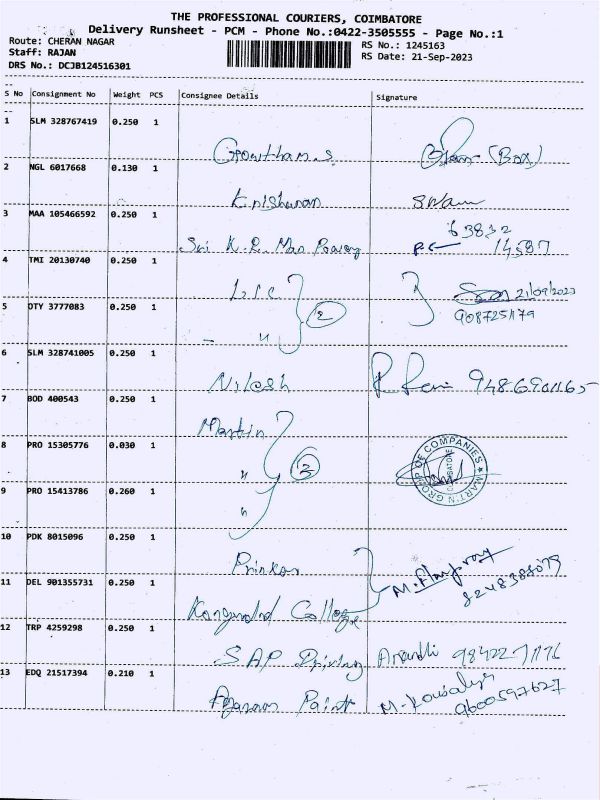 THE PROFESSIONAL COURIERS, COIMBATORE
Delivery Runsheet - PCM - Phone No.:0422-3505555 - Page No.:1
Route: CHERAN NAGAR
Staff: RAJAN
DRS No.: DCJB124516301
RS No.: 1245163
RS Date: 21-Sep-2023
S No Consignment No Weight PCS Consignee Details Signature
1 SLM 328767419 0.250 1
Gowtham s (Box)
2 NGL 6017668 0.130 1
Krishnan
3 MAA 105466592 0.250 1
63832
Sri K. R. 14587
4 TMI 20130740 0.250 1
LIC 2 21/09/2023
5 OTY 3777083 0.250 1
9087251179
"
6 SLM 328741005 0.250 1
Nilesh
7 BOD 400543 0.250 1
Martin
MARTIN GROUP OF COMPANIES
COIMBATORE
8 PRO 15305776 0.030 1
" 3
9 PRO 15413786 0.260 1
"
10 PDK 8015096 0.250 1
11 DEL 901355731 0.250 1
College
12 TRP 4259298 0.250 1
SAP
13 EDQ 21517394 0.210 1
Paint M. Kousalya
9600597627